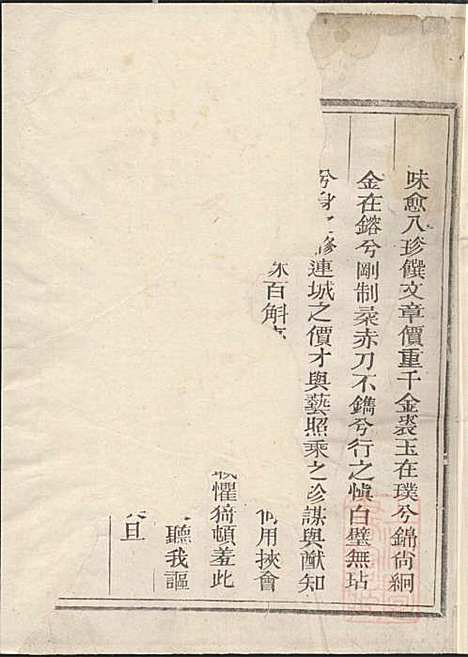 味愈八珍饌文章價重千金裘玉在璞兮錦尚絅
金在鎔兮剛制柔赤刀不鐫兮行之慎白璧無玷
兮身之修連城之價才與藝照乘之珍謀與猷知
百斛
何用挾會
懼猗頓羞此
聽我謳
且